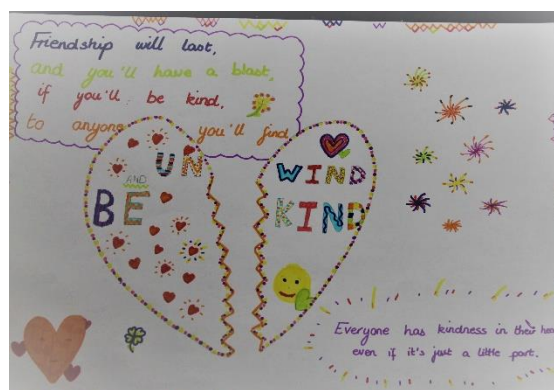 Friendship will last,
and you'll have a blast,
if you'll be kind,
to anyone you'll find
UN WIND
AND
BE KIND
Everyone has kindness in their
even if it's just a little part.